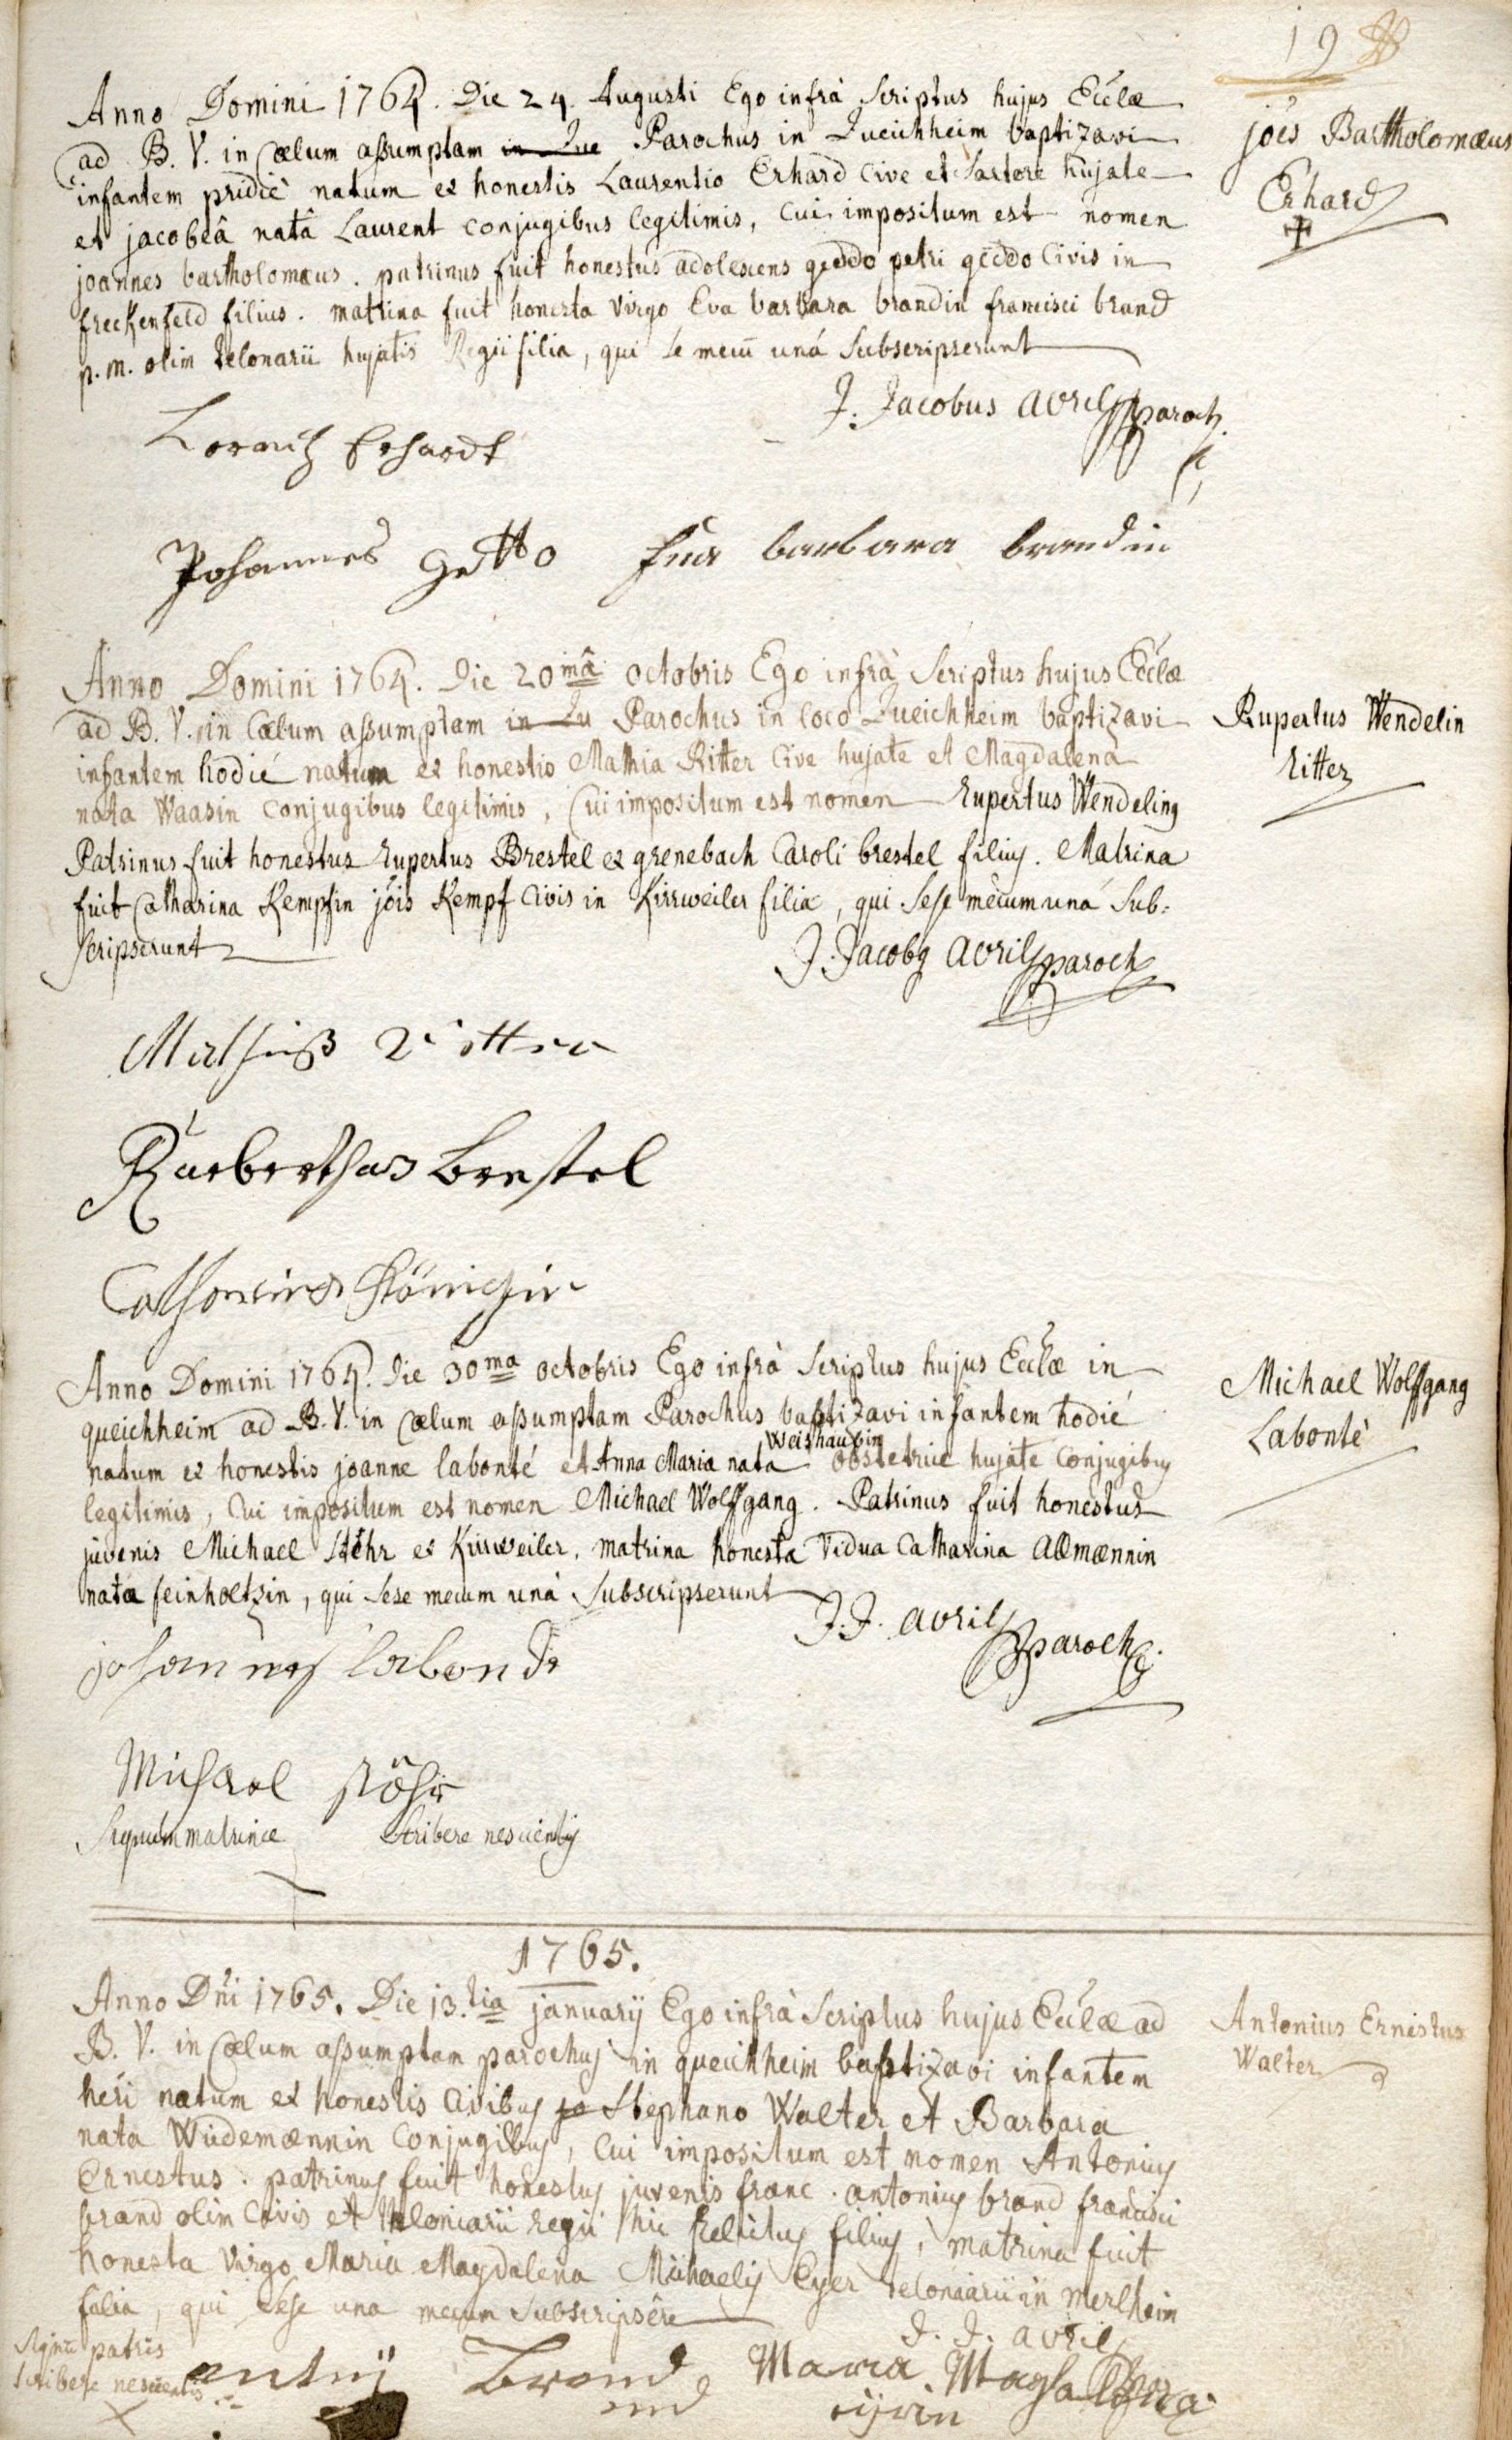 19
Anno Domini 1764. Die 24. Augusti Ego infrà Scriptus hujus Eccłæ
ad B. V. in Cælum assumptam in Que Parochus in Queichheim baptizavi
infantem pridiè natum ex honestis Laurentio Erhard Cive et Sartore hujate
et jacobeâ natâ Laurent conjugibus legitimis, Cui impositum est nomen
joannes bartholomæus. patrinus fuit honestus adolescens geddo petri geddo Civis in
freckenfeld filius. matrina fuit honesta virgo Eva barbara brandin francisci brand
p. m. olim telonarii hujatis Regii filia, qui se mecū unà Subscripserunt
joēs Bartholomæus
Erhard
J. Jacobus avril paroch.
Lorentz Erhardt
Johannes Getto Eva barbara brandin
Anno Domini 1764. Die 20mâ octobris Ego infrà Scriptus hujus Eccłæ
ad B. V. in Cælum assumptam in Qu Parochus in loco Queichheim baptizavi
infantem hodiè natum ex honestis Mathia Ritter Cive hujate et Magdalena
nata Waasin Conjugibus legitimis, Cui impositum est nomen Rupertus Wendeling
Patrinus fuit honestus Rupertus Brestel ex grenebach Caroli brestel filius. Matrina
fuit Catharina Kempfin jōis Kempf Civis in Kirrweiler filia, qui Sese mecum unà Sub:
scripserunt
Rupertus Wendelin
Ritter
J. Jacobus avril paroch
Mathiuß Ritter
Ruberthus Brestel
Catharina
Anno Domini 1764. Die 30ma octobris Ego infrà Scriptus hujus Eccłæ in
queichheim ad B. V. in Cælum assumptam Parochus baptizavi infantem hodiè
weishaubin
natum ex honestis joanne labonté et Anna Maria nata obstetrice hujate Conjugibus
legitimis, Cui impositum est nomen Michael Wolffgang. Patrinus fuit honestus
juvenis Michael Stöhr ex Kirrweiler, matrina honesta Vidua Catharina Allmænnin
nata feinholtzin, qui Sese mecum unà Subscripserunt
Michael Wolffgang
Labontè
J. J. avril paroch.
johannes labonde
Michael Stöhr
Signum matrinæ Scribere nescientis
1765.
Anno Dn̄i 1765. Die 13.tia januarij Ego infrà Scriptus hujus Eccłæ ad
B. V. in Cælum assumptam parochus in queichheim baptizavi infantem
heri natum ex honestis Civibus jo Stephano Walter et Barbara
nata Wiidemænnin Conjugibus, Cui impositum est nomen Antonius
Ernestus. patrinus fuit honestus juvenis franc. antonius brand francisci
brand olim Civis et teloniarii regii hic relictus filius, matrina fuit
honesta virgo Maria Magdalena Michaelis Eyer teloniarii in merlheim
filia, qui Sese una mecum Subscripsêre
Antonius Ernestus
Walter
J. J. avril
Signū patris
Scribere nescientis
antonij Brand Maria Magdalena
eyrin